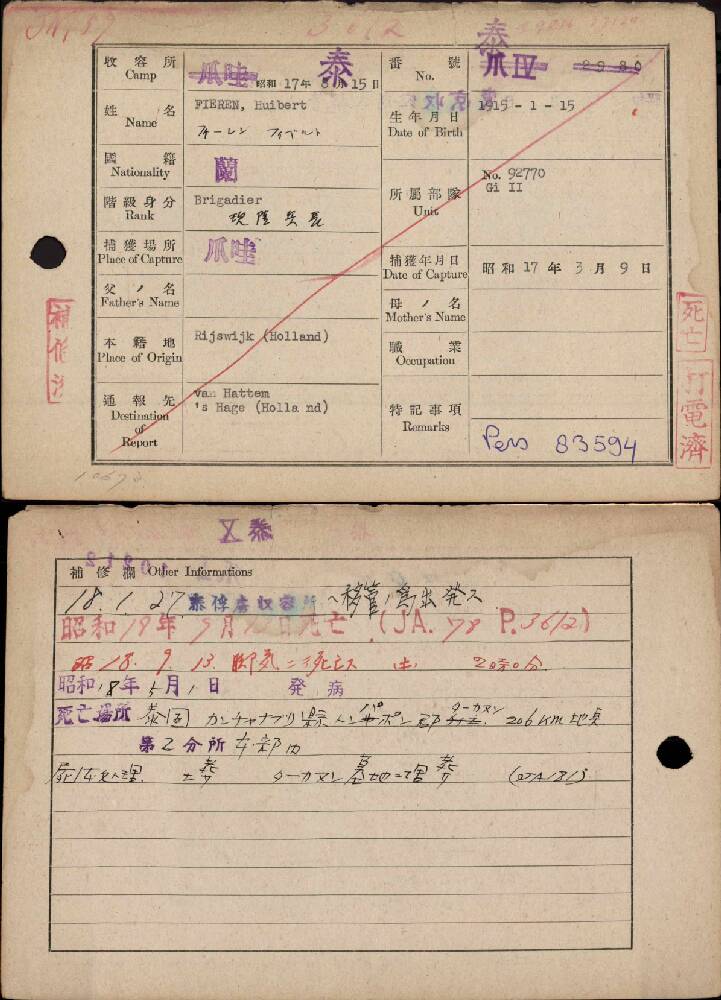 3612
收容所
Camp
爪哇 昭和17年8月15日
泰
番號
No.
泰
爪IV 2980
姓名
Name
FIEREN, Huibert
フィーレン フイベルト
生年月日
Date of Birth
1915 - 1 - 15
國籍
Nationality
蘭
階級身分
Rank
Brigadier
所屬部隊
Unit
No. 92770
Gi II
捕獲場所
Place of Capture
爪哇
捕獲年月日
Date of Capture
昭和 17 年 3 月 9 日
父ノ名
Father's Name
母ノ名
Mother's Name
本籍地
Place of Origin
Rijswijk (Holland)
職業
Occupation
通報先
Destination
of
Report
van Hattem
's Hage (Holla nd)
特記事項
Remarks
Pers 83594
補修済
死亡
打電濟
泰 X
補修欄 Other Informations
18. 1. 27 泰俘虜収容所ヘ移管ノ為出発ス
昭和19年9月 日死亡 (JA. 78 P. 3612)
昭18. 9. 13. 脚気
昭和18年5月1日 発病
死亡場所 泰国 カンチャナブリ県 ターカヌン 206 km 地点
第2分所本部内
屍体処理 土葬 ターカヌン墓地ニ埋葬